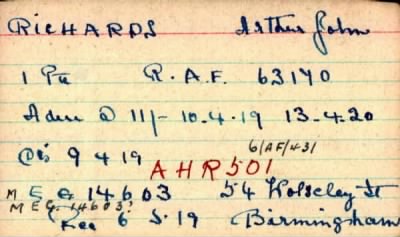 RICHARDS Arthur John
1 Pte R.A.F. 63170
Adm @ 11/- 10.4.19 13.4.20
Dis 9 4 19 6/AF/431
AHR501
M E G 14603 54 Wolseley St
MEG 14603?
Rec 6 5.19 Birmingham